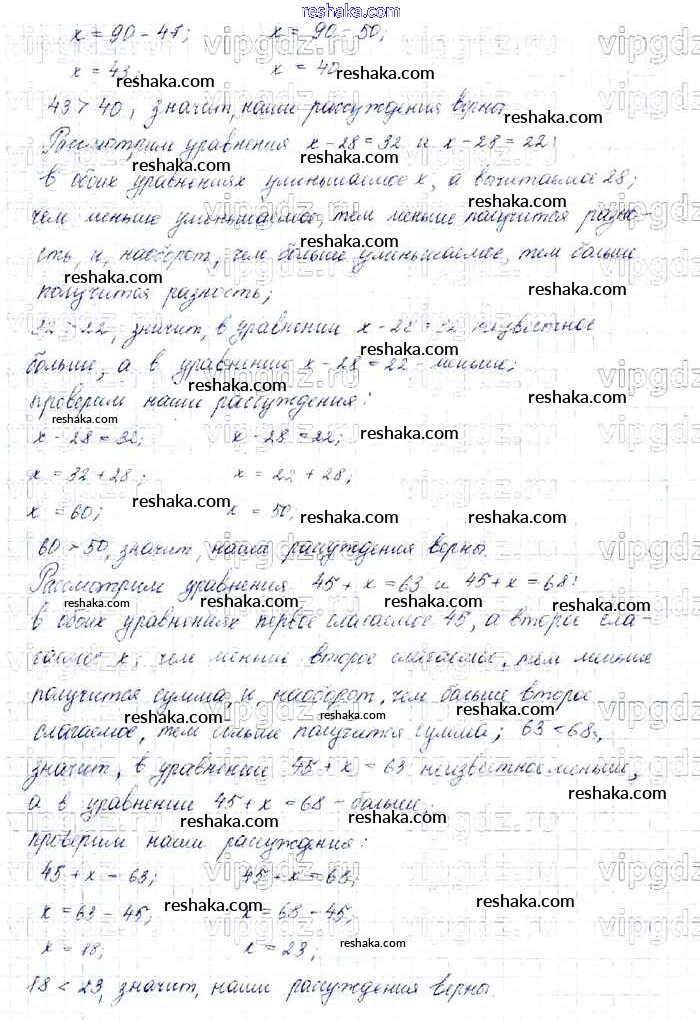 reshaka.com
x = 90 - 47; x = 90 - 50;
x = 43; x = 40
43 > 40, значит, наши рассуждения верны.
Рассмотрим уравнения x - 28 = 32 и x - 28 = 22:
в обоих уравнениях уменьшаемое x, а вычитаемое 28;
чем меньше уменьшаемое, тем меньше получится разно-
сть, и, наоборот, чем больше уменьшаемое, тем больше
получится разность;
32 > 22, значит, в уравнении x - 28 = 32 неизвестное
больше, а в уравнении x - 28 = 22 - меньше;
проверим наши рассуждения:
x - 28 = 32; x - 28 = 22;
x = 32 + 28; x = 22 + 28;
x = 60; x = 50.
60 > 50, значит, наши рассуждения верны.
Рассмотрим уравнения 45 + x = 63 и 45 + x = 68:
в обоих уравнениях первое слагаемое 45, а второе сла-
гаемое x; чем меньше второе слагаемое, тем меньше
получится сумма, и, наоборот, чем больше второе
слагаемое, тем больше получится сумма; 63 < 68,
значит, в уравнении 45 + x = 63 неизвестное меньше,
а в уравнении 45 + x = 68 - больше;
проверим наши рассуждения:
45 + x = 63; 45 + x = 68;
x = 63 - 45; x = 68 - 45;
x = 18; x = 23;
18 < 23, значит, наши рассуждения верны.